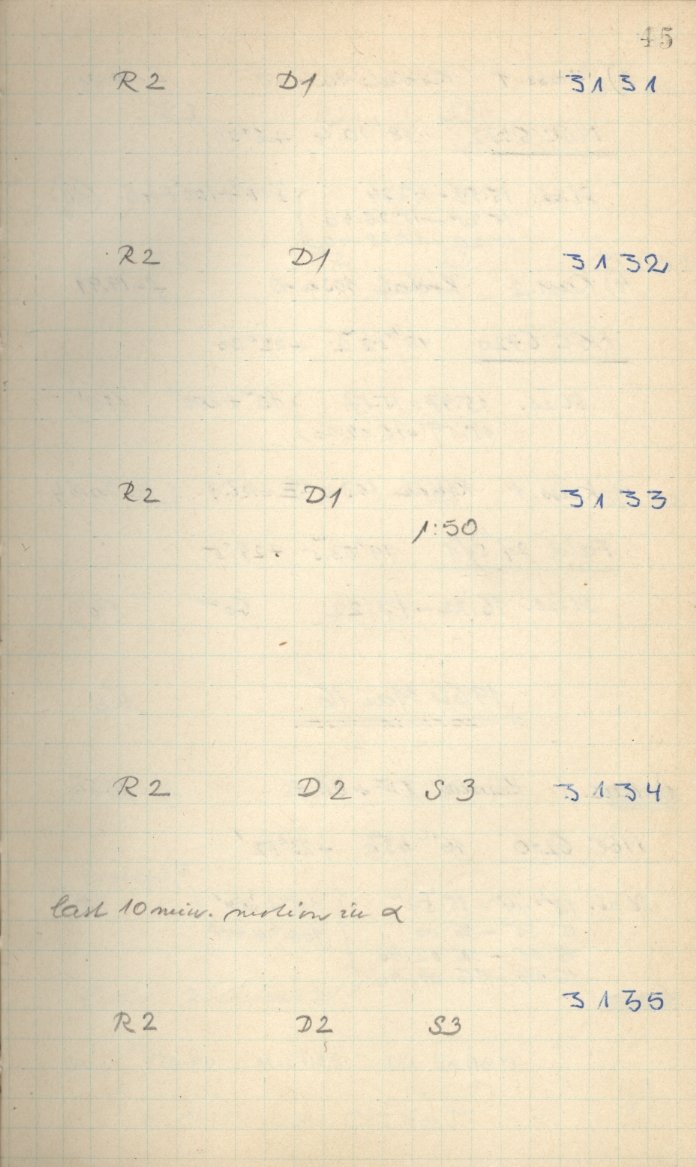 45
R2 D1 3131
R2 D1 3132
R2 D1 3133
1:50
R2 D2 S3 3134
last 10 min. motion in α
3135
R2 D2 S3